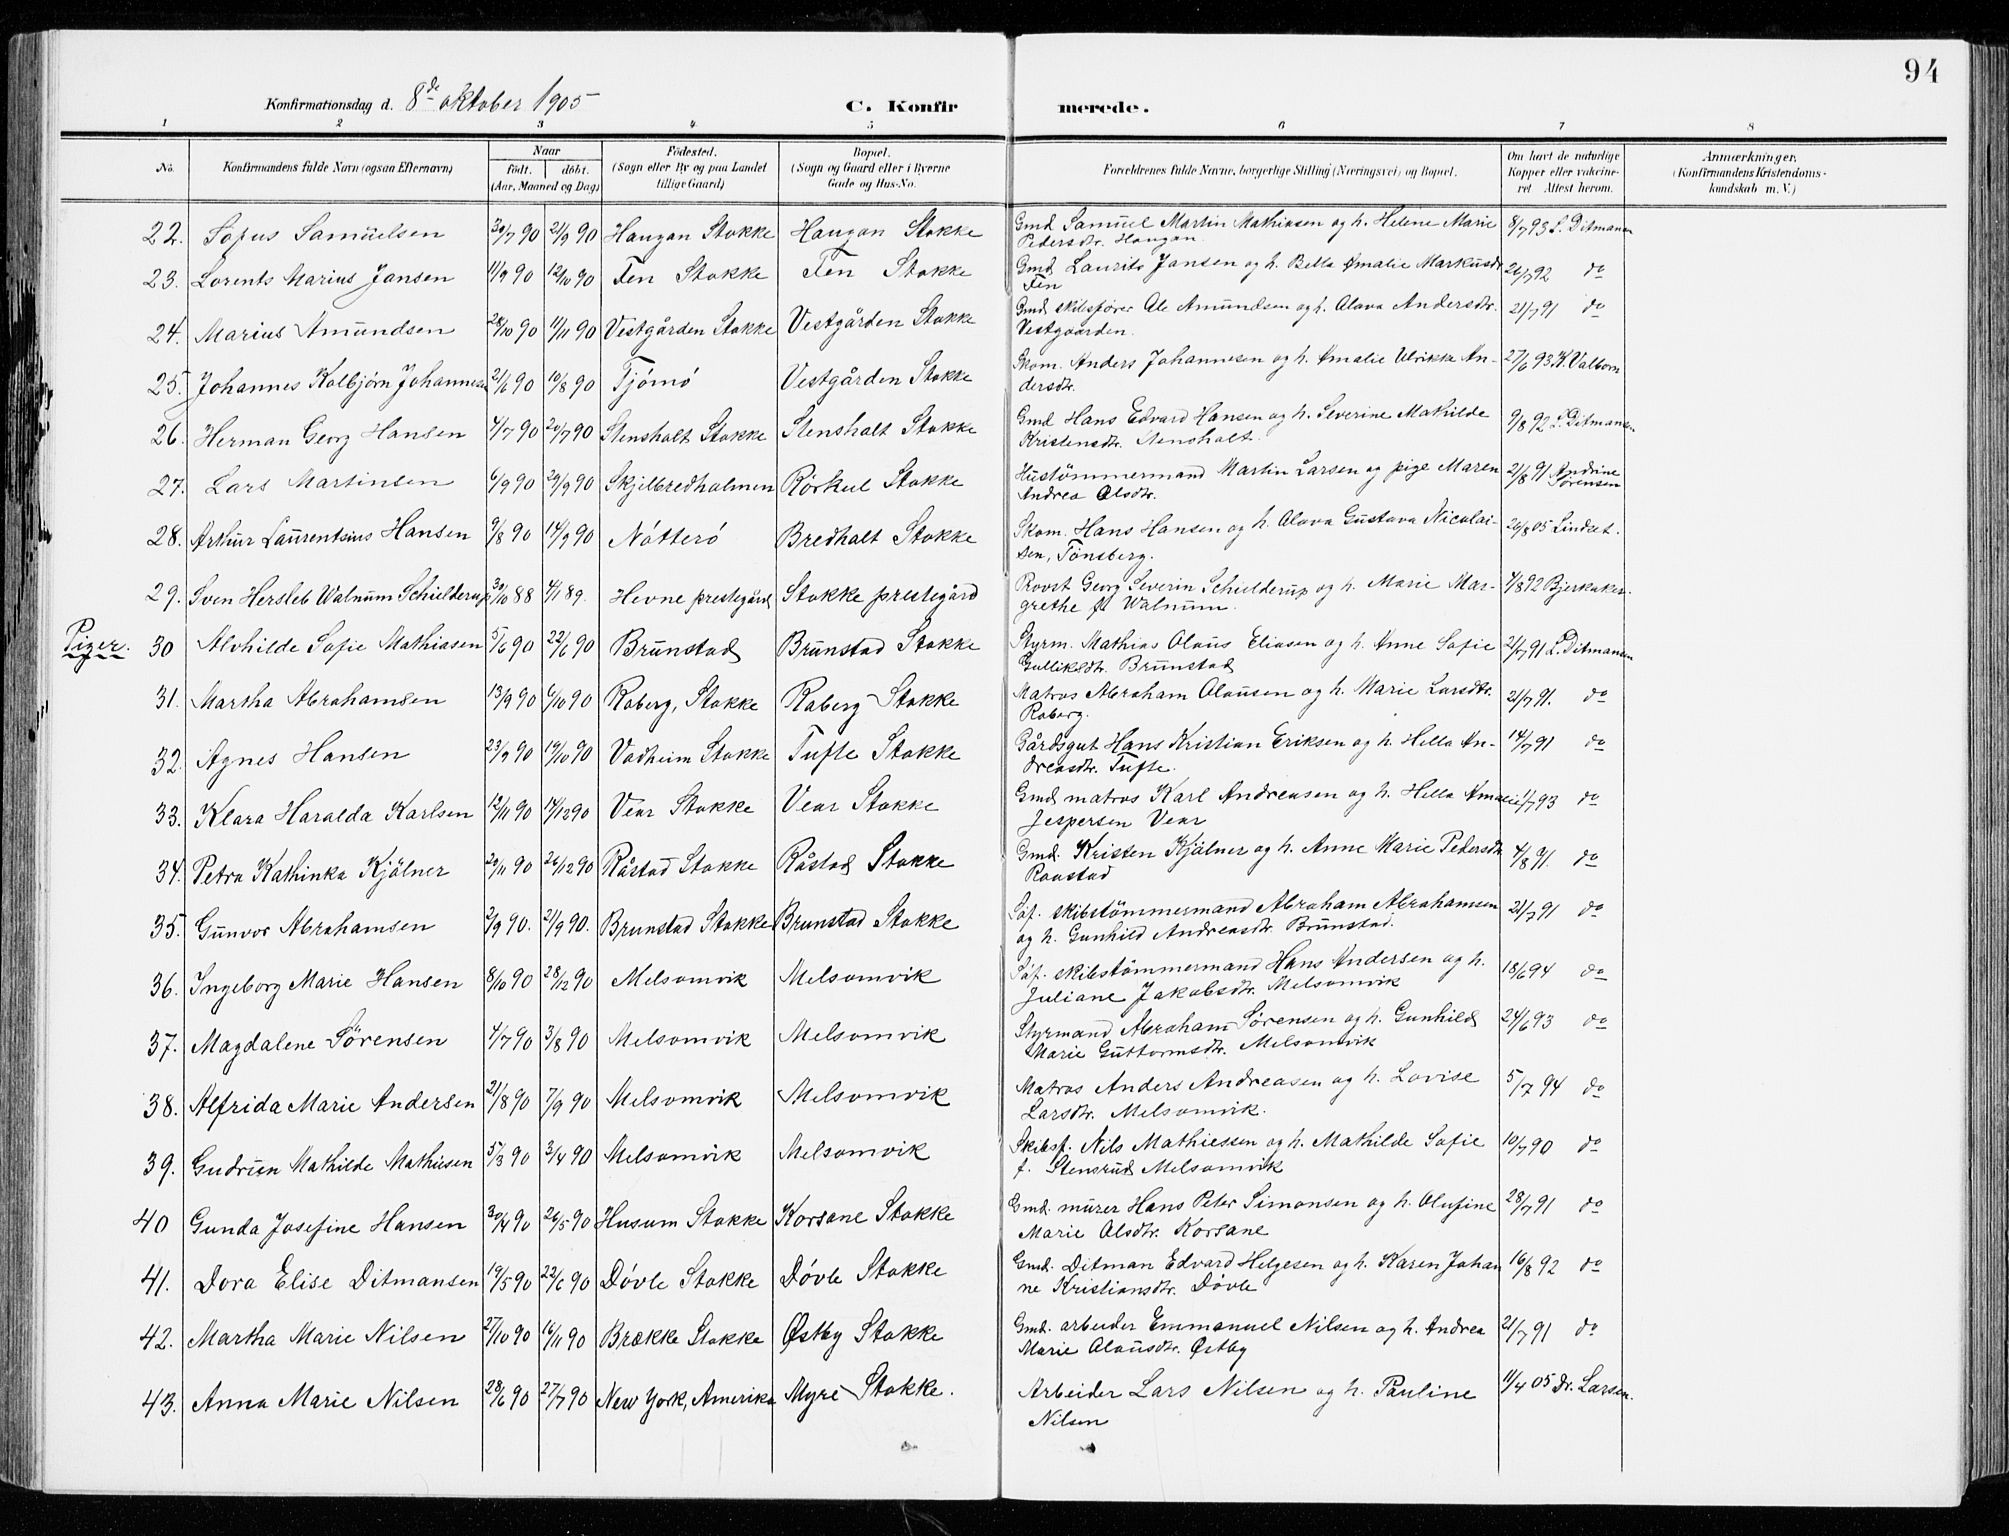 94
Konfirmationsdag d. 8de oktober 1905
C. Konfir merede.
1 2 3 4 5 6 7 8
No. Konfirmandens fulde Navn (ogsaa Efternavn) Naar født. døbt. (Aar, Maaned og Dag) Fødested. (Sogn eller By og paa Landet tillige Gaard) Bopæl. (Sogn og Gaard eller i Byerne Gade og Hus-No. Forældrenes fulde Navne, borgerlige Stilling (Næringsvei) og Bopæl. Om havt de naturlige Kopper eller vakcineret Attest herom. Anmærkninger. (Konfirmandens Kristendomskundskab m. V.)
22. Sofus Samuelsen 30/7 90 21/9 90 Haugan Stokke Haugan Stokke Gmd Samuel Martin Mathiasen og h. Helene Marie 8/7 93 L. Ditmansen
Pedersdtr. Haugan.
23. Lorents Marius Jansen 11/9 90 12/10 90 Fen Stokke Fen Stokke Gmd Laurits Jansen og h. Bella Amalie Markusdtr 26/7 92 do
Fen
24. Marius Amundsen 28/10 90 11/11 90 Vestgården Stokke Vestgården Stokke Gmd skibsfører Ole Amundsen og h. Olava Andersdtr. 21/7 91 do
Vestgaarden.
25. Johannes Kolbjörn Johannesen 21/6 90 10/8 90 Tjömö Vestgården Stokke Skom. Anders Johannesen og h. Amalie Ulrikke An- 27/6 93 K. Valbom
dersdtr.
26. Herman Georg Hansen 4/7 90 20/7 90 Stensholt Stokke Stensholt Stokke Gmd Hans Edvard Hansen og h. Severine Mathilde 9/8 92 L. Ditmansen
Kristensdtr. Stensholt.
27. Lars Martinsen 6/9 90 29/9 90 Skjelbredholmen Rørkul Stokke Hustömmermand Martin Larsen og pige Maren 21/8 91 Andrine Sørensen
Andrea Olsdtr.
28. Arthur Laurentsius Hansen 9/8 90 14/9 90 Nötterö Bredholt Stokke Skom. Hans Hansen og h. Olava Gustava Nicolai- 26/8 05 Lindset.
sen, Tönsberg.
29. Sven Hersleb Walnum Schielderup 30/10 88 4/1 89. Hevne prestegård Stokke prestegård Provst Georg Severin Schielderup og h. Marie Mar- 4/8 92 Bjerkaker.
grethe f. Walnum.
Piger.
30 Alvhilde Sofie Mathiasen 5/6 90 22/6 90 Brunstad Brunstad Stokke Styrm. Mathias Olaus Eliasen og h. Anne Sofie 21/7 91 L. Ditmansen
Gulliksdtr. Brunstad
31. Martha Abrahamsen 13/9 90 6/10 90 Raberg, Stokke Raberg Stokke Matros Abraham Olausen og h. Marie Larsdtr. 21/7 91. do
Raberg.
32. Agnes Hansen 23/9 90 19/10 90 Vadheim Stokke Tufte Stokke Gårdsgut Hans Kristian Eriksen og h. Hella An- 14/7 91 do
dreasdtr. Tufte.
33. Klara Haralda Karlsen 12/11 90 14/12 90 Vear Stokke Vear Stokke Gmd matros Karl Andreasen og h. Hella Amalie 1/7 93 do
Jespersen Vear
34. Petra Kathinka Kjölner 20/11 90 26/12 90 Råstad Stokke Råstad Stokke Gmd. Kristen Kjølner og h. Anne Marie Pedersdtr 4/8 91. do
Raastad
35. Gunvor Abrahamsen 2/9 90. 21/9 90. Brunstad Stokke Brunstad Stokke Söf. skibstömmermand Abraham Abrahamsen 21/7 91 do
og h. Gunhild Andreasdtr. Brunstad.
36. Ingeborg Marie Hansen 8/10 90 28/12 90 Melsomvik Melsomvik Söf. skibstömmermand Hans Andersen og h. 18/6 94 do
Juliane Jakobsdtr. Melsomvik
37. Magdalene Sörensen 4/7 90 3/8 90 Melsomvik Melsomvik Styrmand Abraham Sørensen og h. Gunhild 24/6 93 do
Marie Guttormsdtr. Melsomvik
38. Alfrida Marie Andersen 21/8 90 7/9 90 Melsomvik Melsomvik Matros Anders Andreasen og h. Lovise 5/7 94 do
Larsdtr. Melsomvik.
39. Gudrun Mathilde Mathiesen 5/3 90 3/4 90 Melsomvik Melsomvik Skibsf. Nils Mathiessen og h. Mathilde Sofie 10/7 90 do
f. Stensrud Melsomvik
40 Gunda Josefine Hansen 30/4 90 26/5 90 Husum Stokke Korsane Stokke Gmd. murer Hans Peter Simonsen og h. Olufine 28/7 91 do
Marie Olsdtr. Korsane
41. Dora Elise Ditmansen 19/5 90 22/6 90 Døvle Stokke Døvle Stokke Gmd. Ditman Edvard Helgesen og h. Karen Johan 16/8 92 do
ne Kristiansdtr. Døvle
42. Martha Marie Nilsen 27/10 90 16/11 90 Brække Stokke Østby Stokke Gmd. arbeider Emmanuel Nilsen og h. Andrea 21/7 91 do
Marie Olausdtr. Østby
43. Anna Marie Nilsen 28/6 90 27/7 90 New York, Amerika Myre Stokke. Arbeider Lars Nilsen og h. Pauline 11/4 05 Dr. Larsen.
Nilsen